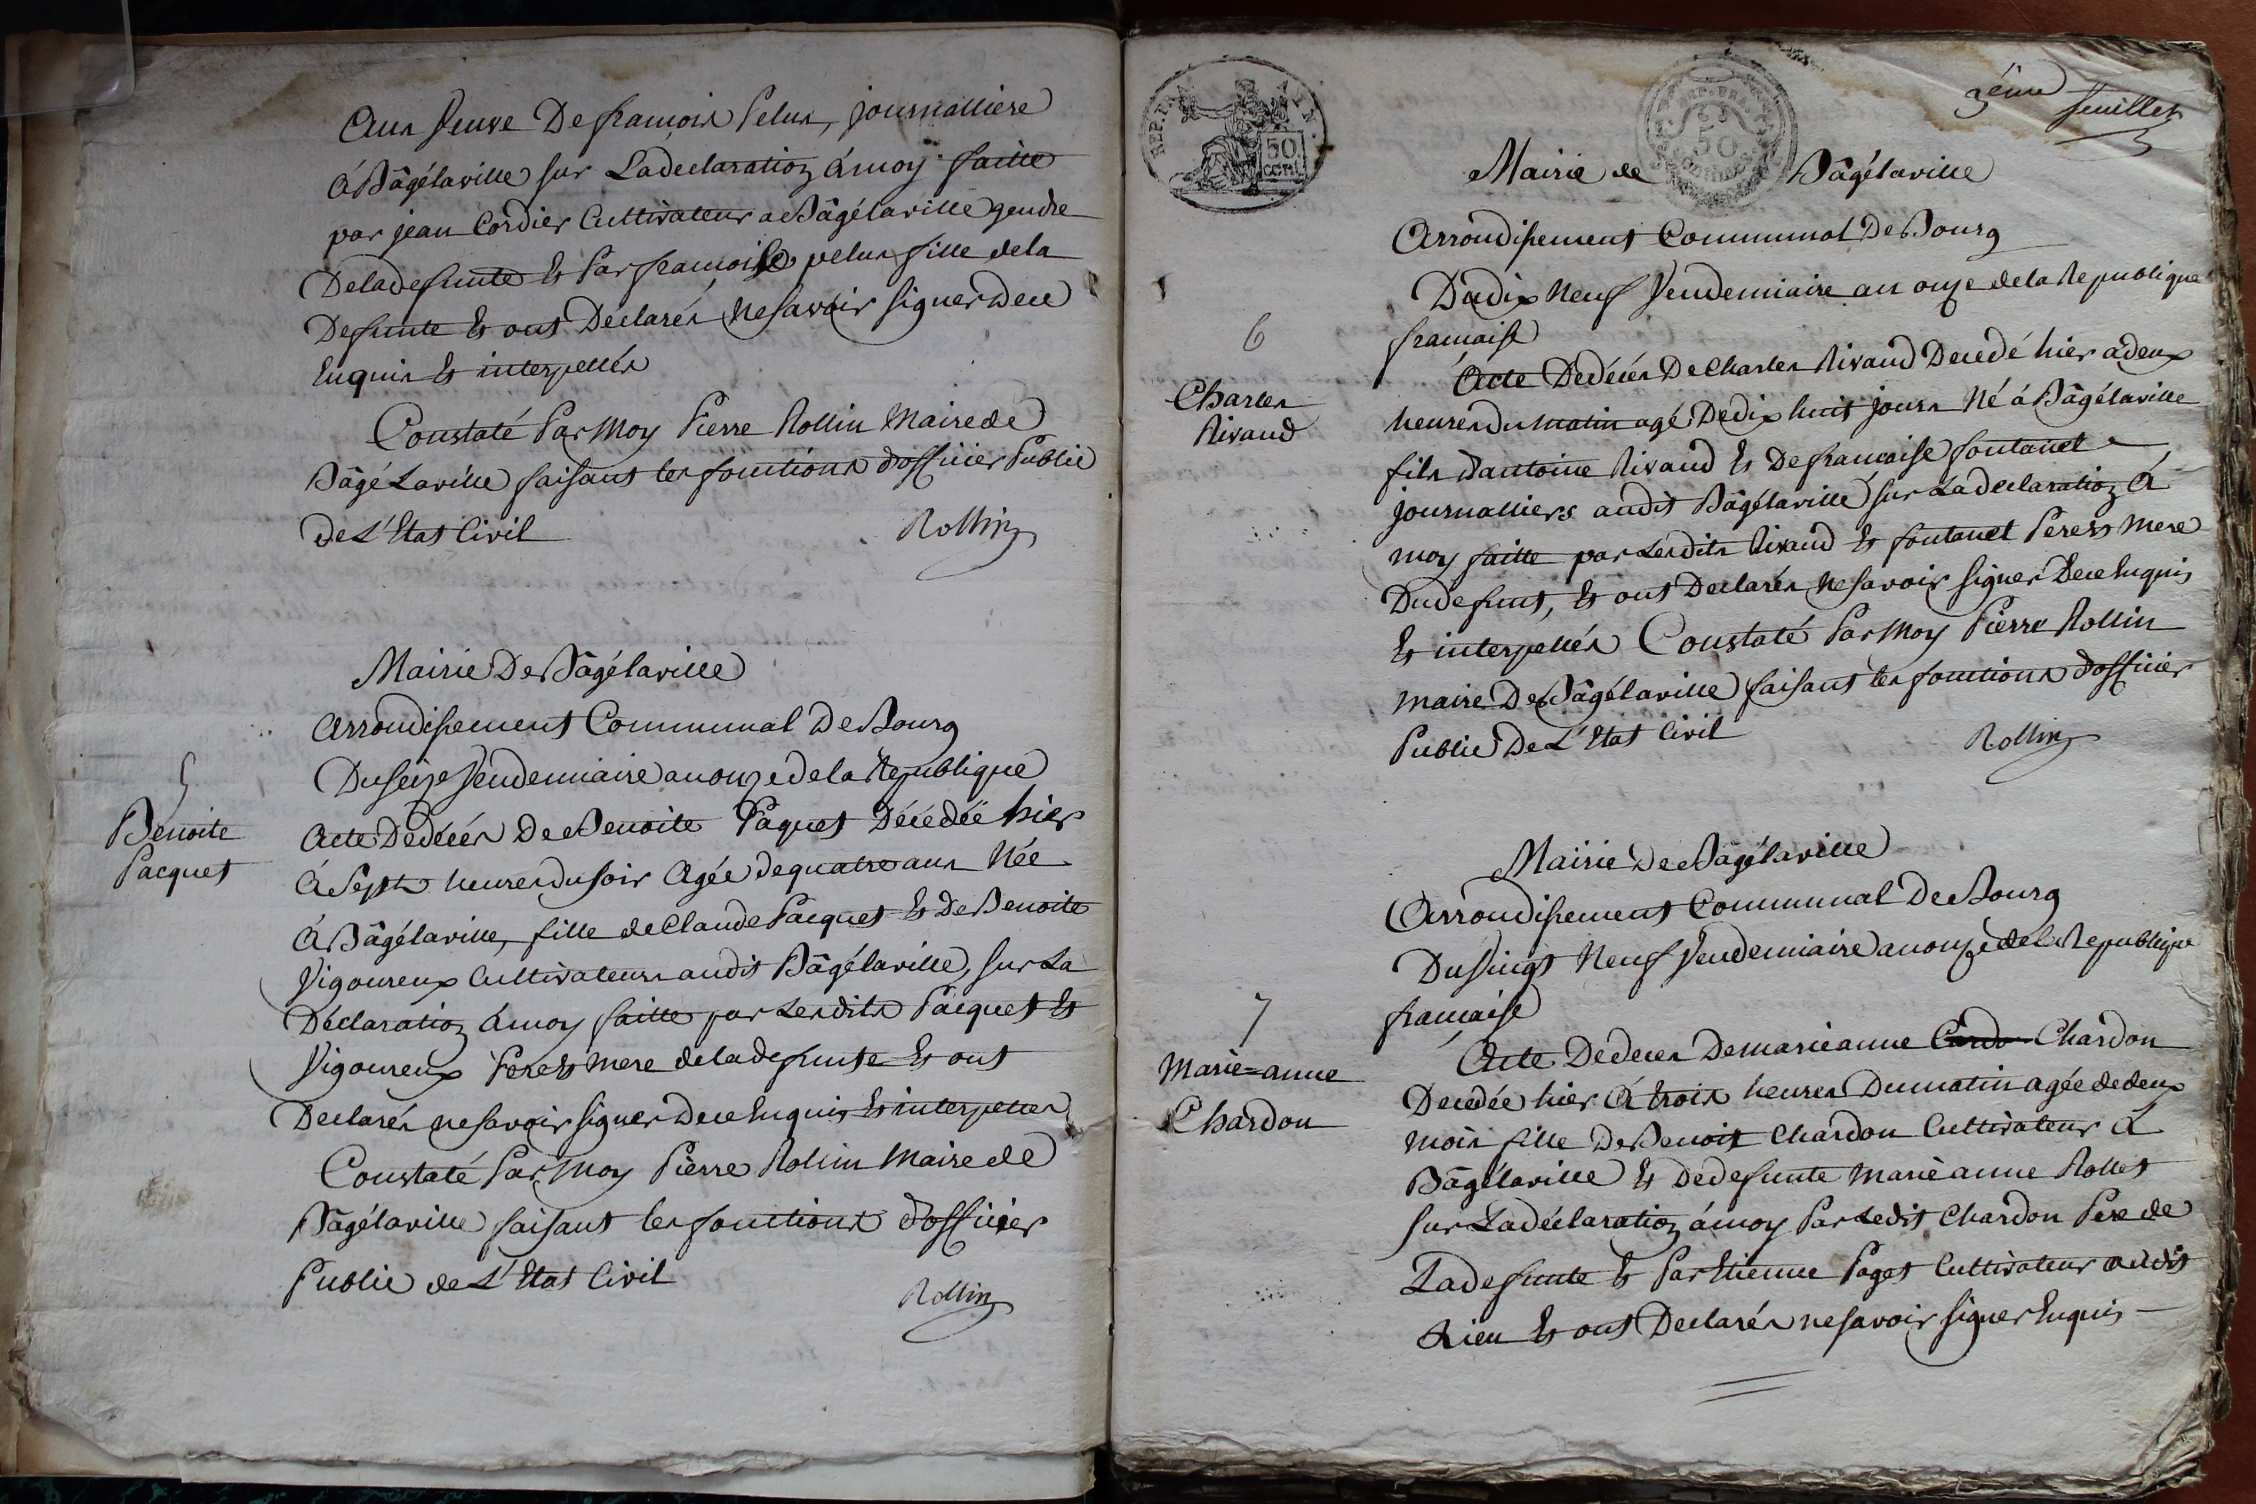 ans veuve De françois Pelus, journalliere
à Bâgélaville sur La declaration à moy faitte
par jean Cordier Cultivateur a Bâgélaville gendre
De la defunte Et Par françoise pelus fille de la
Defunte Et ont Declarés Ne savoir signer De ce
Enquis Et interpellés
Constaté Par Moy Pierre Rollin Maire de
Bâgé Laville faisant les fonctions d'officier Public
de L'Etat Civil
Rollin
Mairie De Bâgélaville
Arrondissement Communal De Bourg
Du seize Vendemiaire an onze de la Republique
5
Benoite
Pacquet
Acte De décés De Benoite Paquet Décédée hier
à Sept heures du soir Agée de quatre ans Née
à Bâgélaville, fille de Claude Pacquet Et De Benoite
Vigoureux Cultivateurs audit Bâgélaville, sur La
Déclaration à moy faitte par Lesdits Pacquet Et
Vigoureux Pere Et mere de la defunte Et ont
Declarés ne savoir signer De ce Enquis Et interpellés
Constaté Par Moy Pierre Rollin Maire de
Bâgélaville faisant les fonctions d'officier
Public de L'Etat Civil
Rollin
REP. FRA.
50
CENT.
REP. FRA.
50
3ême
feuillet
Mairie de Bâgélaville
Arrondissement Communal De Bourg
Du dix Neuf Vendemiaire an onze de la Republique
française
6
Charles
Rivaud
Acte De décés De Charles Rivaud Decedé hier a deux
heures du matin agé De dix huit jours Né à Bâgélaville
fils d'antoine Rivaud Et De françoise fontanel
journalliers audit Bâgélaville sur La declaration à
moy faitte par Lesdits Rivaud Et fontanel Pere Et Mere
Du defunt, Et ont Declarés Ne savoir signer De ce Enquis
Et interpellés Constaté Par Moy Pierre Rollin
maire De Bâgélaville faisant les fonctions d'officier
Public De L'Etat Civil
Rollin
Mairie De Bâgélaville
Arrondissement Communal De Bourg
Du Vingt Neuf Vendemiaire an onze de la Republique
française
7
Marie=anne
Chardon
Acte De deces De marie anne Cardo Chardon
Decedée hier à trois heures Du matin agée de deux
mois fille De Benoit Chardon Cultivateur à
Bâgélaville Et De defunte Marie anne Rollet
sur La déclaration à moy Par Ledit Chardon Pere de
La defunte Et Par Etienne Paget Cultivateur audit
Lieu Et ont Declarés ne savoir signer Enquis